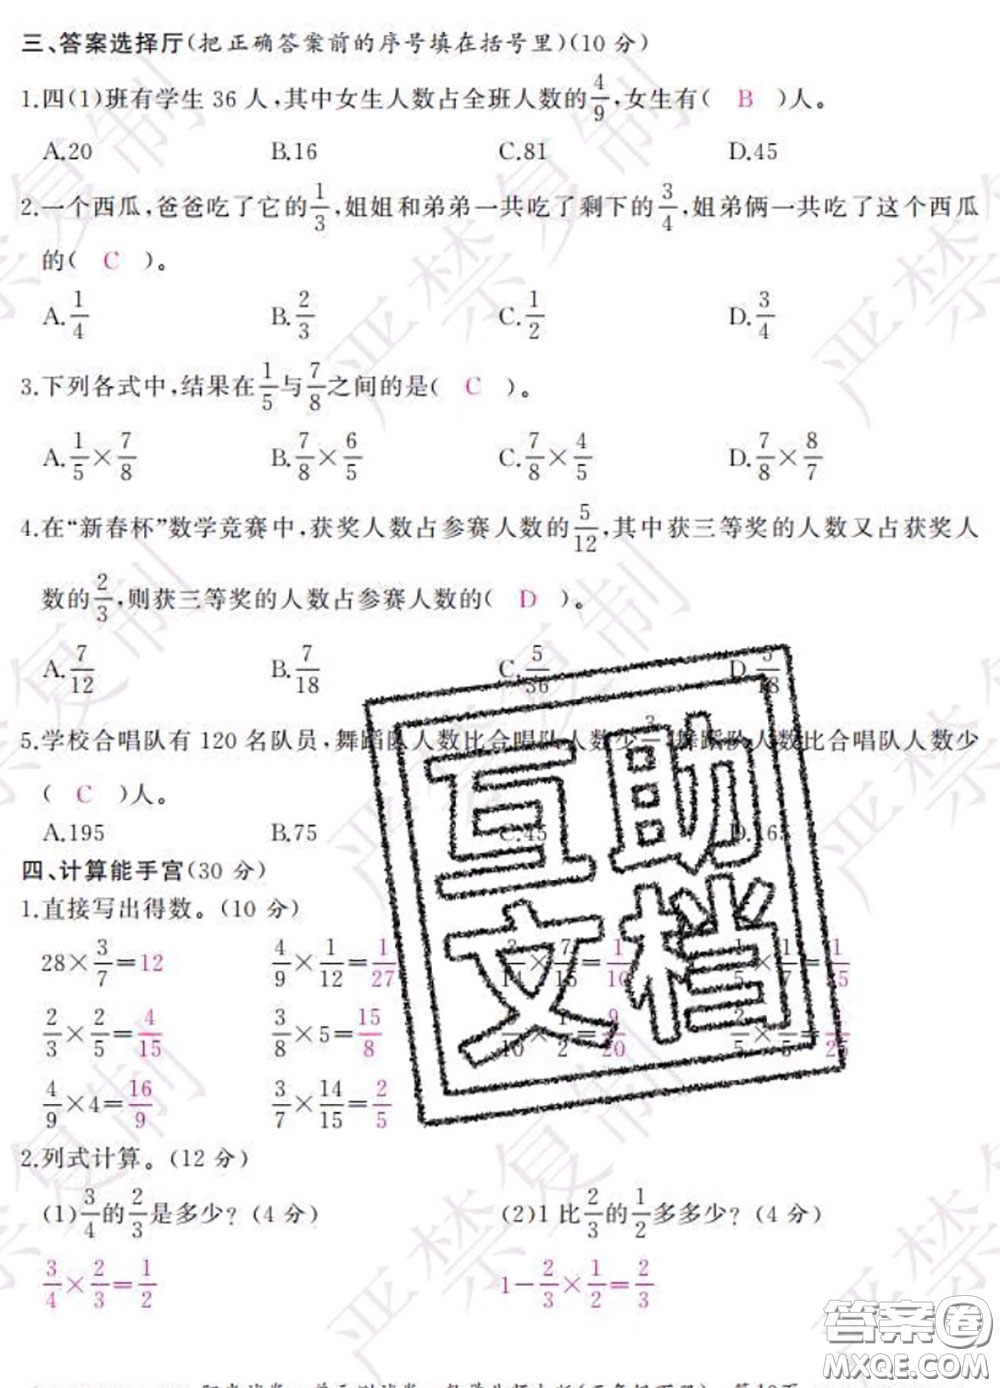 三、答案选择厅(把正确答案前的序号填在括号里)(10 分)
1.四(1)班有学生 36 人,其中女生人数占全班人数的4/9,女生有( B )人。
A.20 B.16 C.81 D.45
2.一个西瓜,爸爸吃了它的1/3,姐姐和弟弟一共吃了剩下的3/4,姐弟俩一共吃了这个西瓜
的( C )。
A.1/4 B.2/3 C.1/2 D.3/4
3.下列各式中,结果在1/5与7/8之间的是( C )。
A.1/5×7/8 B.7/8×6/5 C.7/8×4/5 D.7/8×8/7
4.在“新春杯”数学竞赛中,获奖人数占参赛人数的5/12,其中获三等奖的人数又占获奖人
数的2/3,则获三等奖的人数占参赛人数的( D )。
A.7/12 B.7/18 C.5/36 D.5/18
5.学校合唱队有 120 名队员,舞蹈队人数比合唱队人数少 ,舞蹈队人数比合唱队人数少
( C )人。
A.195 B.75 C.45 D.165
四、计算能手宫(30 分)
1.直接写出得数。(10 分)
28×3/7=12 4/9×1/12=1/27 3/14×7/15=1/10 =1/15
2/3×2/5=4/15 3/8×5=15/8 ×1/2=9/20
4/9×4=16/9 3/7×14/15=2/5
2.列式计算。(12 分)
(1)3/4的2/3是多少?(4 分) (2)1 比2/3的1/2多多少?(4 分)
3/4×2/3=1/2 1-2/3×1/2=2/3
互助
文档
严禁复制
答案圈
MXQE.COM